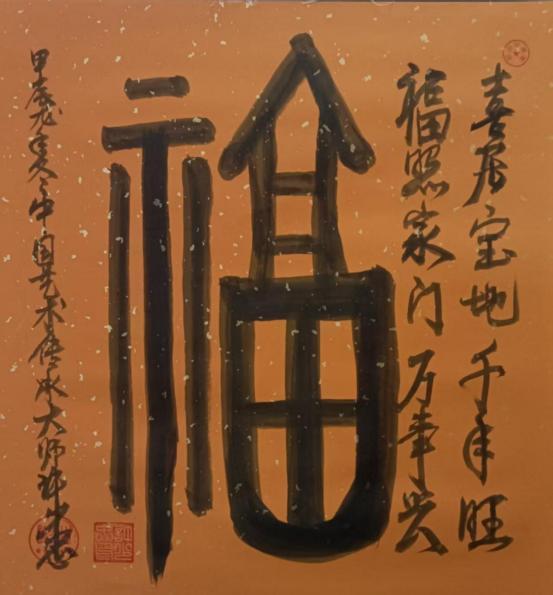 喜居宝地千年旺
福照家门万事兴
福
甲辰龙夏中国艺术传承大师许忠